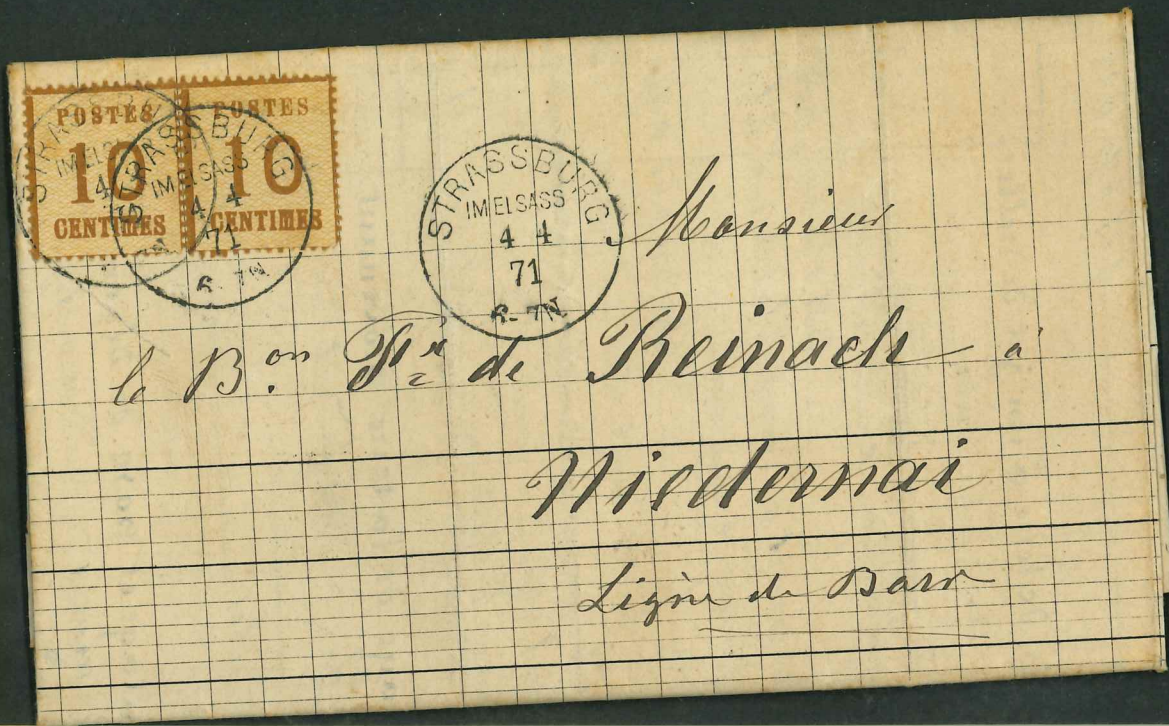 POSTES
10
CENTIMES
POSTES
10
CENTIMES
STRASSBURG
IM ELSASS
4 4
71
6-7N
STRASSBURG
IM ELSASS
4 4
71
6-7N
Monsieur
le B.on de Reinach à
Niedernai
Ligne de Barr